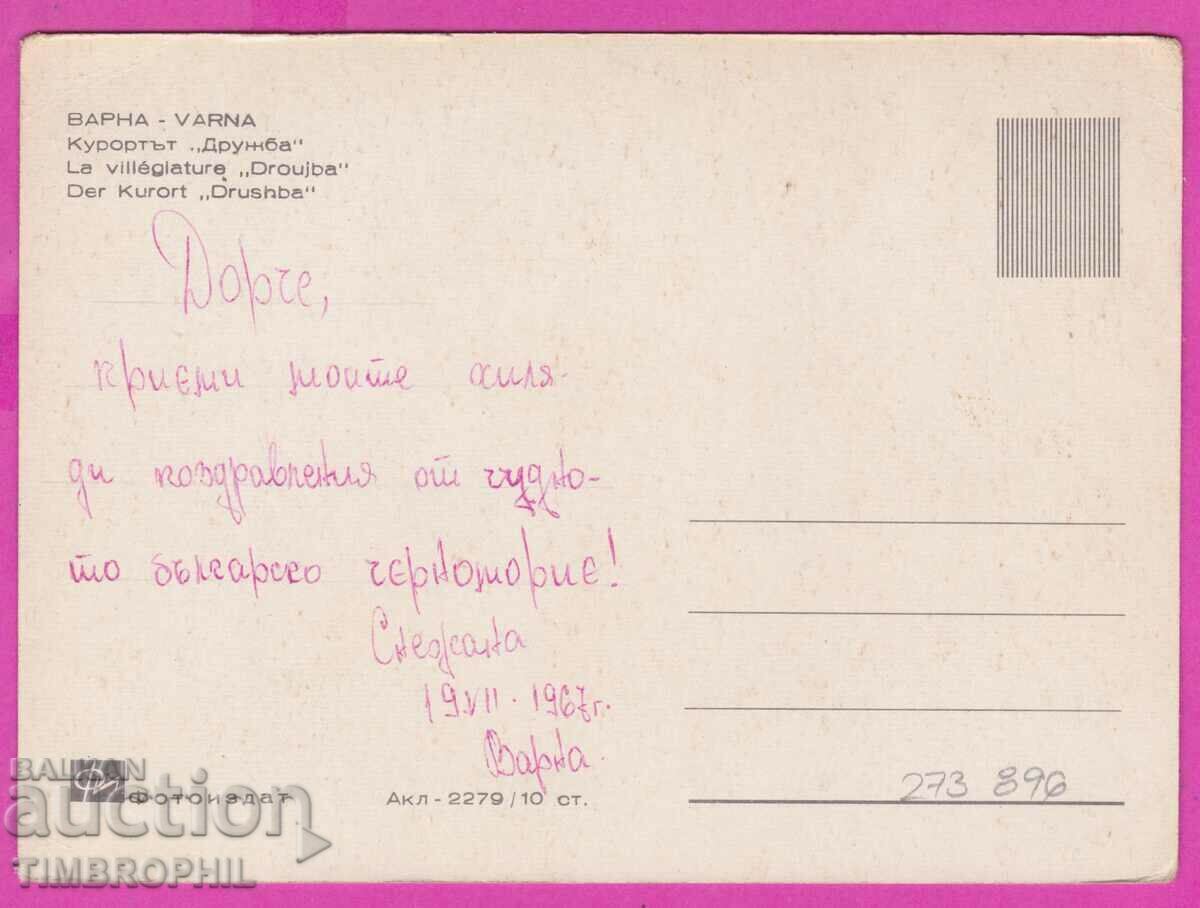 ВАРНА - VARNA
Курортът „Дружба"
La villégiature „Droujba"
Der Kurort „Drushba"
Дорче,
приеми моите хиля-
ди поздравления от чудно-
то българско черноморие!
Снежана
19.VII.1967г.
Варна.
Фотоиздат
Акл-2279/10 ст.
273 896
BALKAN
auction
TIMBROPHIL